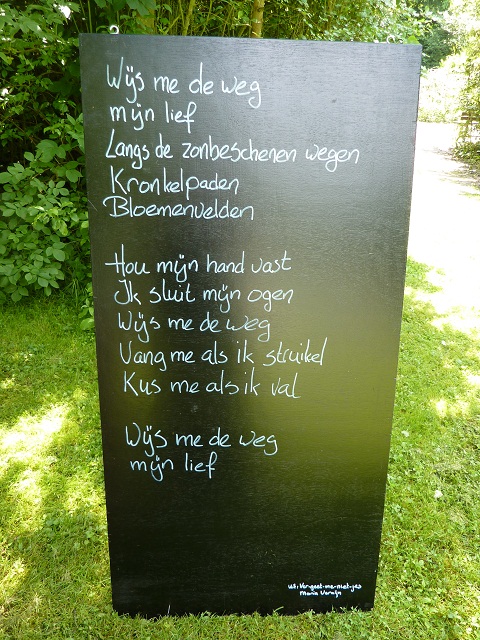 Wijs me de weg
mijn lief
Langs de zonbeschenen wegen
Kronkelpaden
Bloemenvelden
Hou mijn hand vast
Ik sluit mijn ogen
Wijs me de weg
Vang me als ik struikel
Kus me als ik val
Wijs me de weg
mijn lief
uit: Vergeet-me-niet-jes
Maria